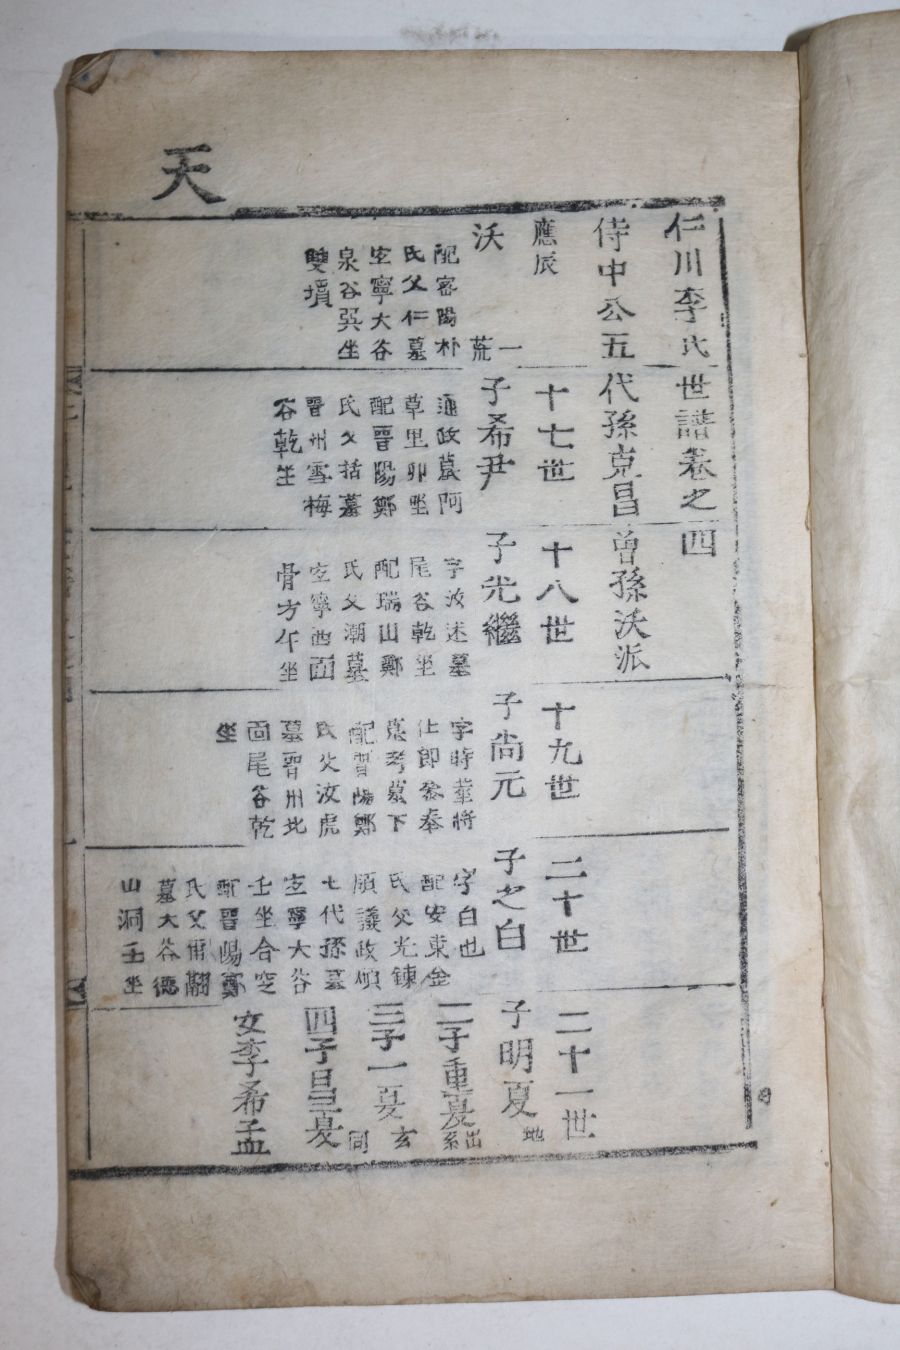 天
仁川李氏世譜卷之四
侍中公五代孫克昌曾孫沃派
應辰
沃
一荒
配密陽朴
氏父仁墓
寧大谷
泉谷巽坐
雙墳
十七世
子希尹
通政墓阿
草里卯坐
配晋陽鄭
氏父括墓
晋州雪梅
谷乾坐
十八世
子光繼
字汝述墓
尾谷乾坐
配瑞山鄭
氏父潮墓
寧西面
骨方午坐
十九世
子尙元
字時華將
仕郎參奉
墓考墓下
配晋陽鄭
氏父汝虎
墓晋州北
面尾谷乾
坐
二十世
子之白
字白也
配安東金
氏父光鍊
順議政
七代孫墓
寧大谷
壬坐合窆
配晋陽鄭
氏父爾
墓大谷德
山洞壬坐
二十一世
子明夏地
二子重夏出系
三子一夏玄
四子昌夏同
女李希孟